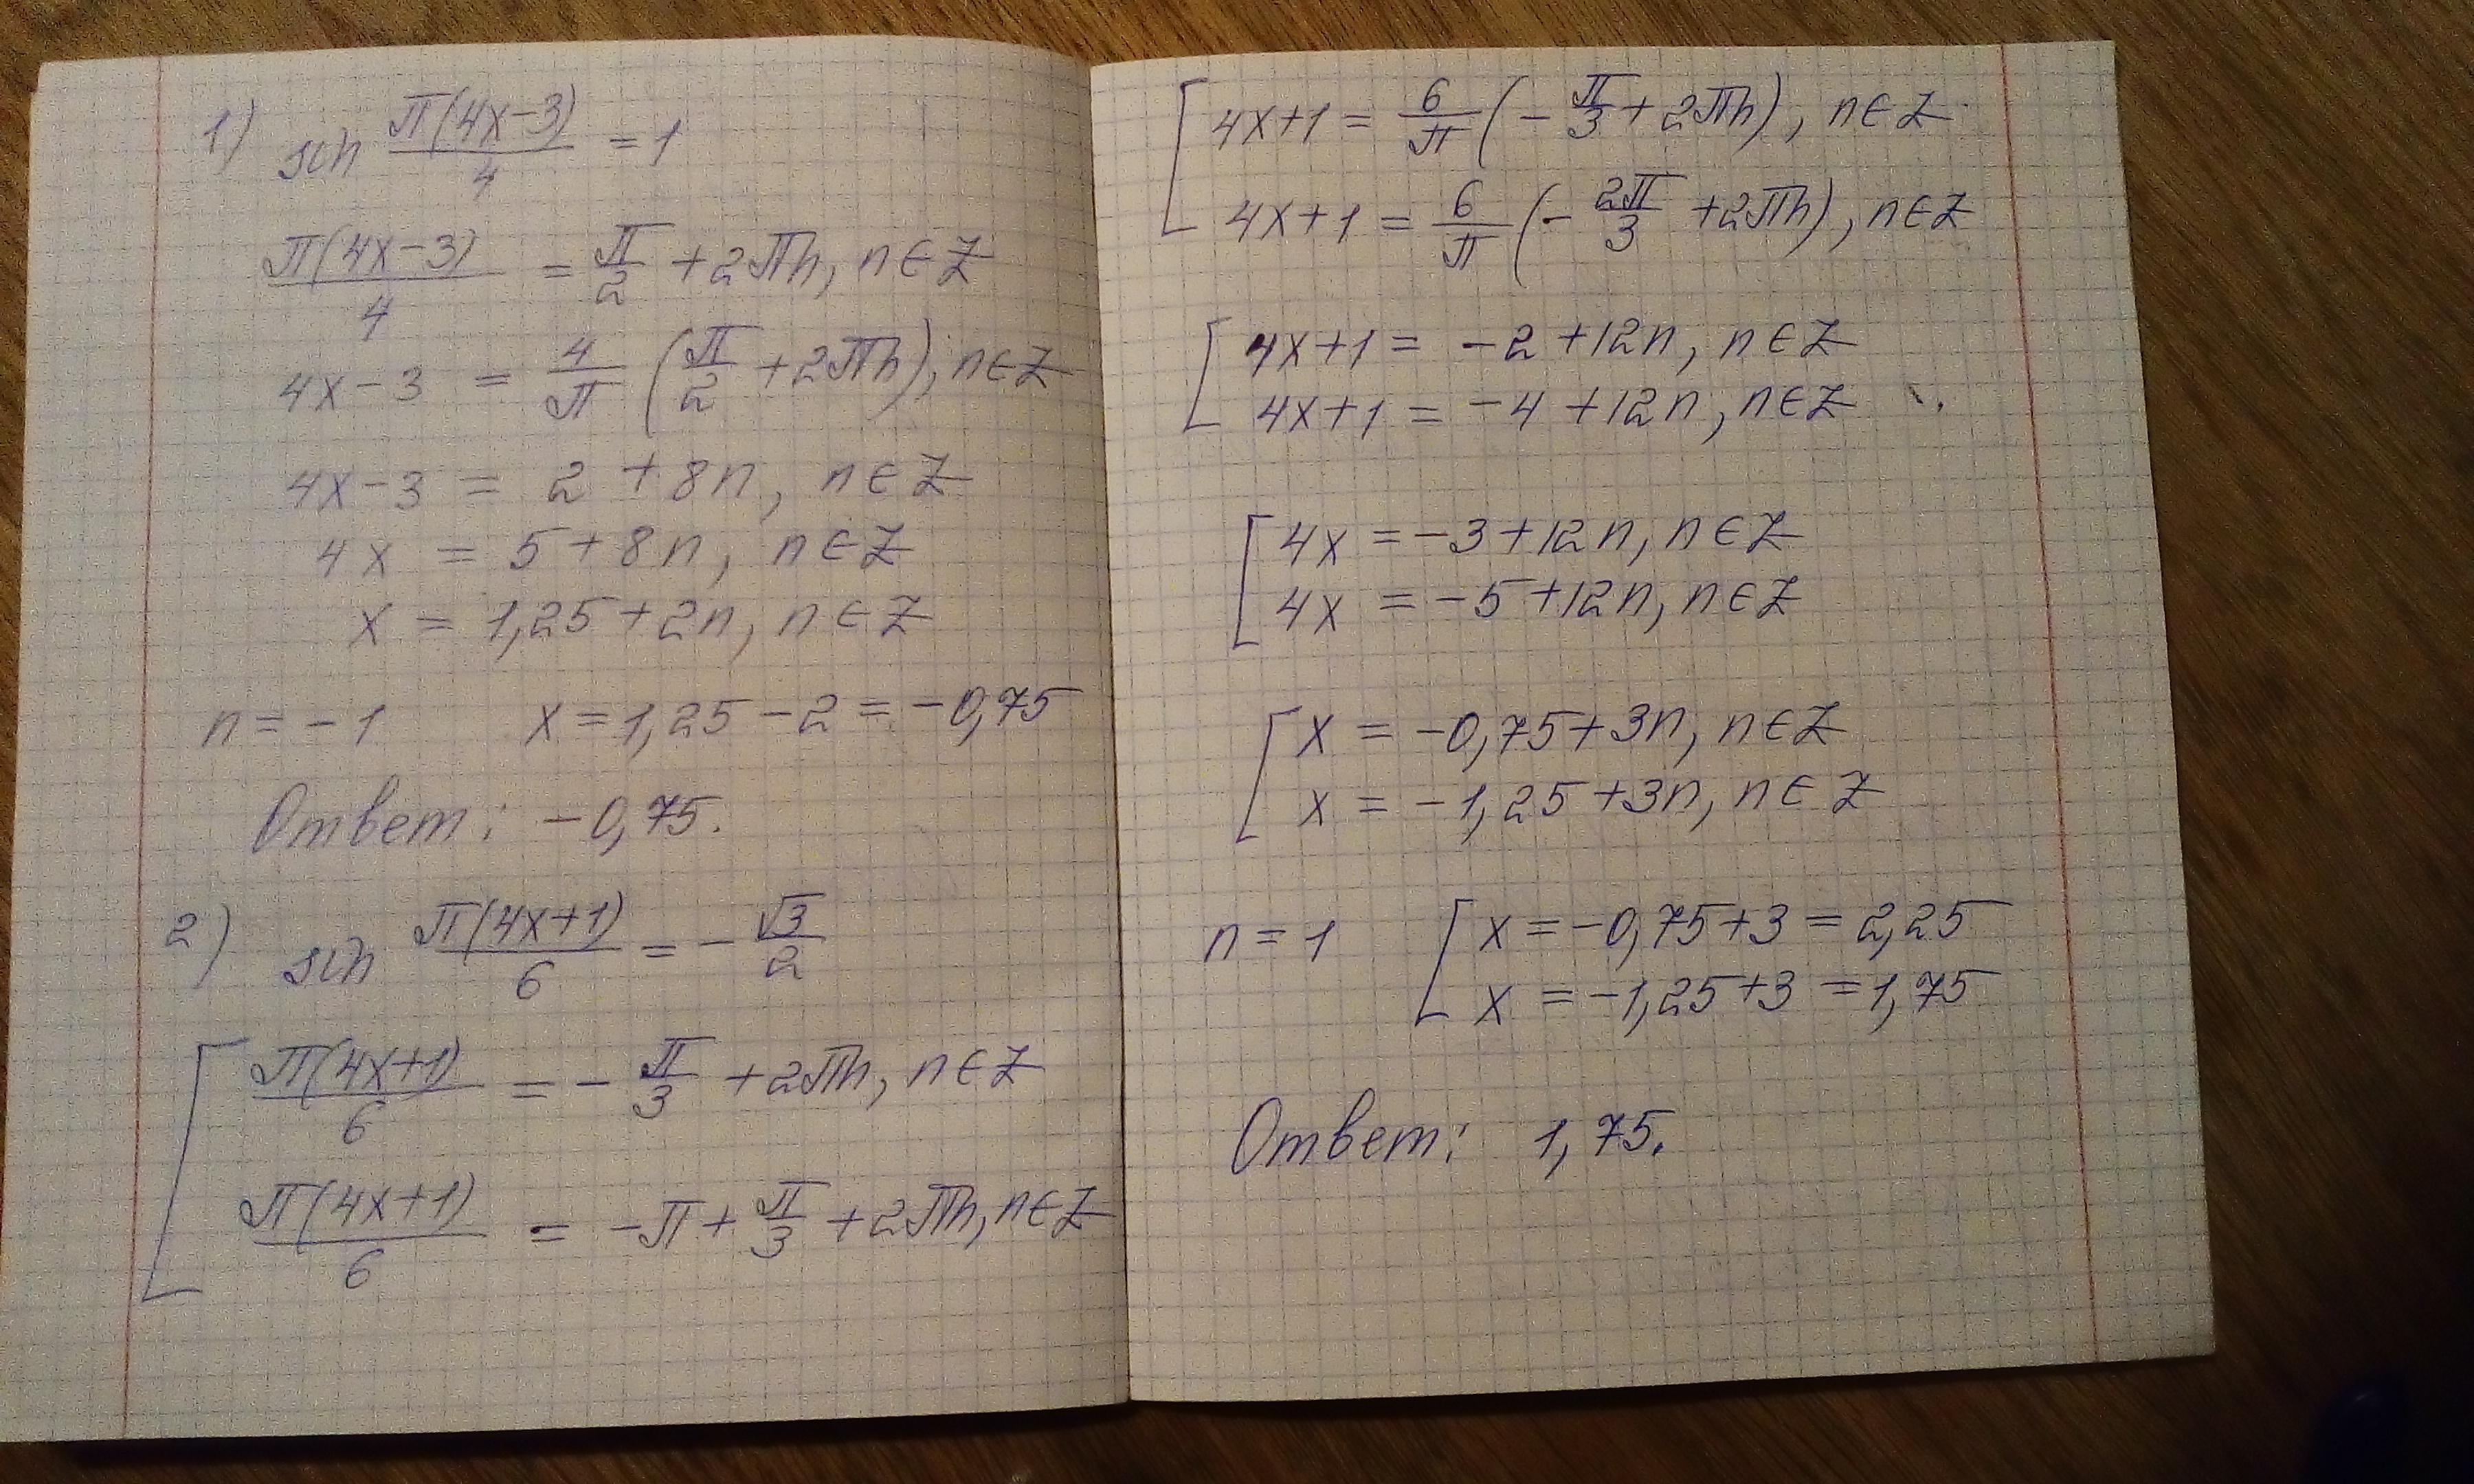 1) sin π(4x-3)/4 = 1
π(4x-3)/4 = π/2 + 2πn, n∈Z
4x-3 = 4/π (π/2 + 2πn), n∈Z
4x-3 = 2 + 8n, n∈Z
4x = 5 + 8n, n∈Z
x = 1,25 + 2n, n∈Z
n = -1 x = 1,25 - 2 = -0,75
Ответ: -0,75.
2) sin π(4x+1)/6 = - √3/2
[ π(4x+1)/6 = - π/3 + 2πn, n∈Z
π(4x+1)/6 = -π + π/3 + 2πn, n∈Z
[ 4x+1 = 6/π (- π/3 + 2πn), n∈Z
4x+1 = 6/π (- 2π/3 + 2πn), n∈Z
[ 4x+1 = -2 + 12n, n∈Z
4x+1 = -4 + 12n, n∈Z
[ 4x = -3 + 12n, n∈Z
4x = -5 + 12n, n∈Z
[ x = -0,75 + 3n, n∈Z
x = -1,25 + 3n, n∈Z
n = 1 [ x = -0,75 + 3 = 2,25
x = -1,25 + 3 = 1,75
Ответ: 1,75.